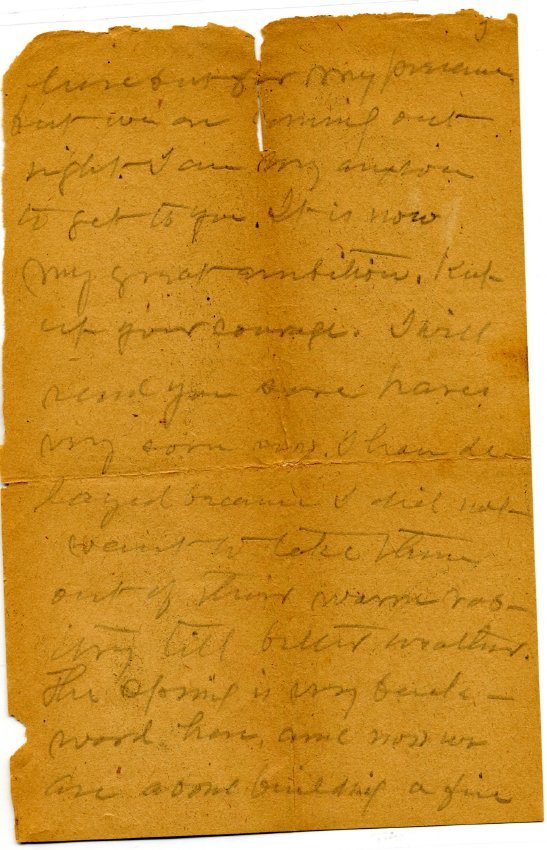 3
here but for my presence
but we are coming out
right. I am very anxious
to get to you. It is now
my great ambition. Keep
up your courage. I will
send you some hares
very soon now. I have de
layed because I did not
want to take them
out of their warm rab-
itry till better weather.
The spring is very back-
ward here, and now we
are about building a fire